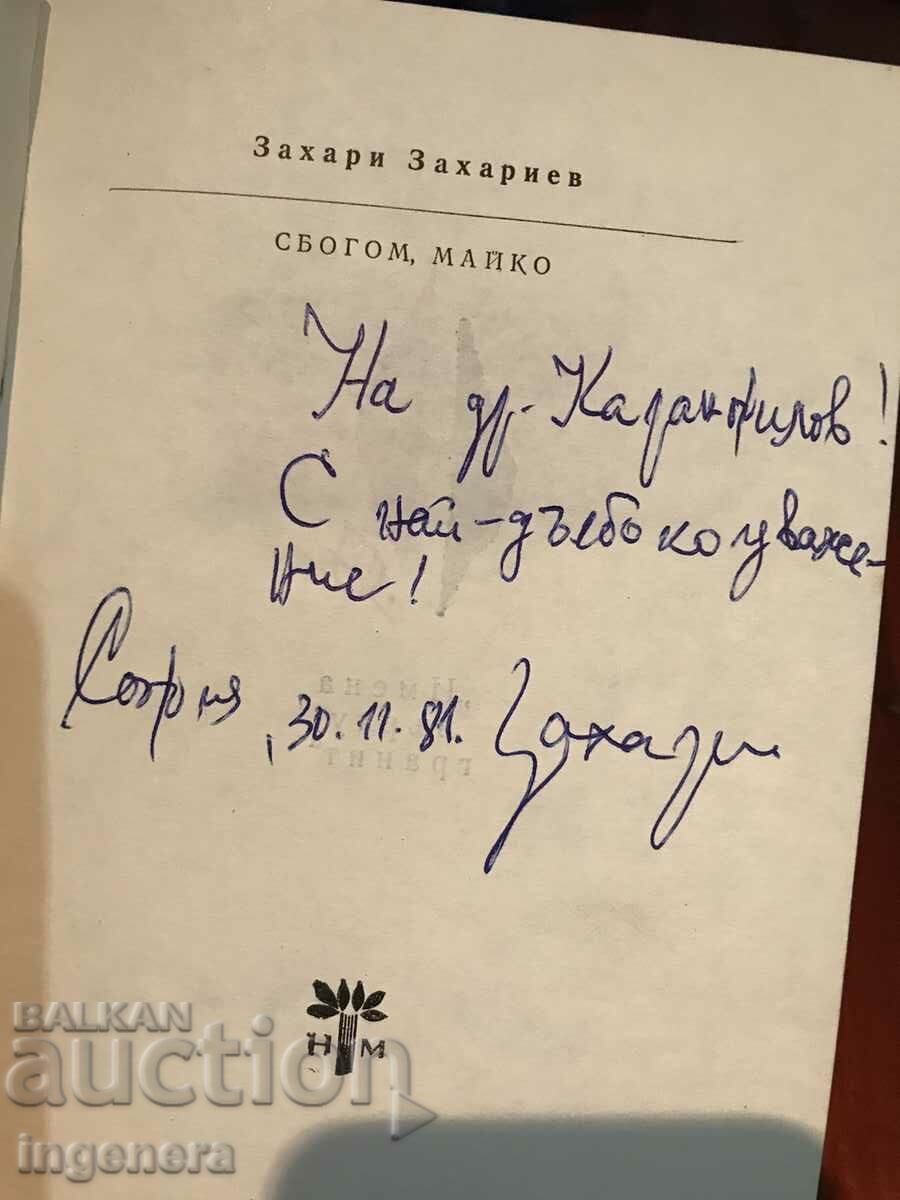 Захари Захариев
СБОГОМ, МАЙКО
На др. Каранфилов!
С най-дълбоко уваже-
ние!
София, 30.11.81. Захари
Имена
гранит
Н М
BALKAN
auction
ingenera